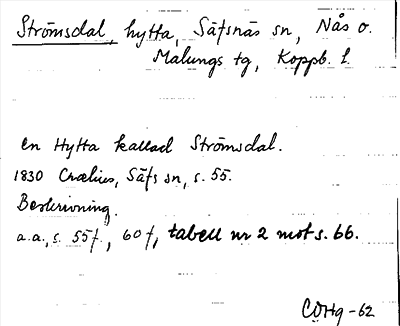 Strömsdal, hytta, Säfsnäs sn, Nås o.
Malungs tg, Koppb. l.
en Hytta kallad Strömsdal.
1830 Crælius, Säfs sn, s. 55.
Beskrivning.
a.a., s. 55f., 60f, tabell nr 2 mot s. 66.
-62